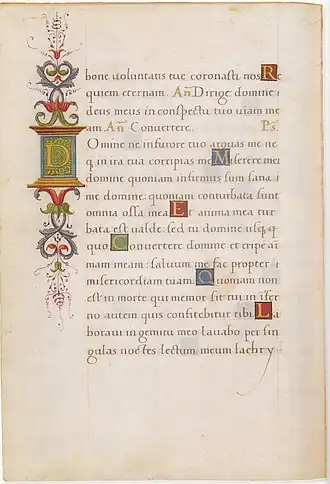 bone uoluntatis tue coronasti nos. Re
quiem eternam. Añ Dirige domine
deus meus in conspectu tuo uiam me
am. Añ Conuertere. Ps.
Domine ne in furore tuo arguas me ne
q in ira tua corripias me. Miserere mei
domine quoniam infirmus sum sana
me domine quoniam conturbata sunt
omnia ossa mea. Et anima mea tur
bata est ualde: sed tu domine usq
quo. Conuertere domine et eripe ani
mam meam: saluum me fac propter
misericordiam tuam. Quoniam non
est in morte qui memor sit tui in infer
no autem quis confitebitur tibi. La
boraui in gemitu meo lauabo per sin
gulas noctes lectum meum lachry